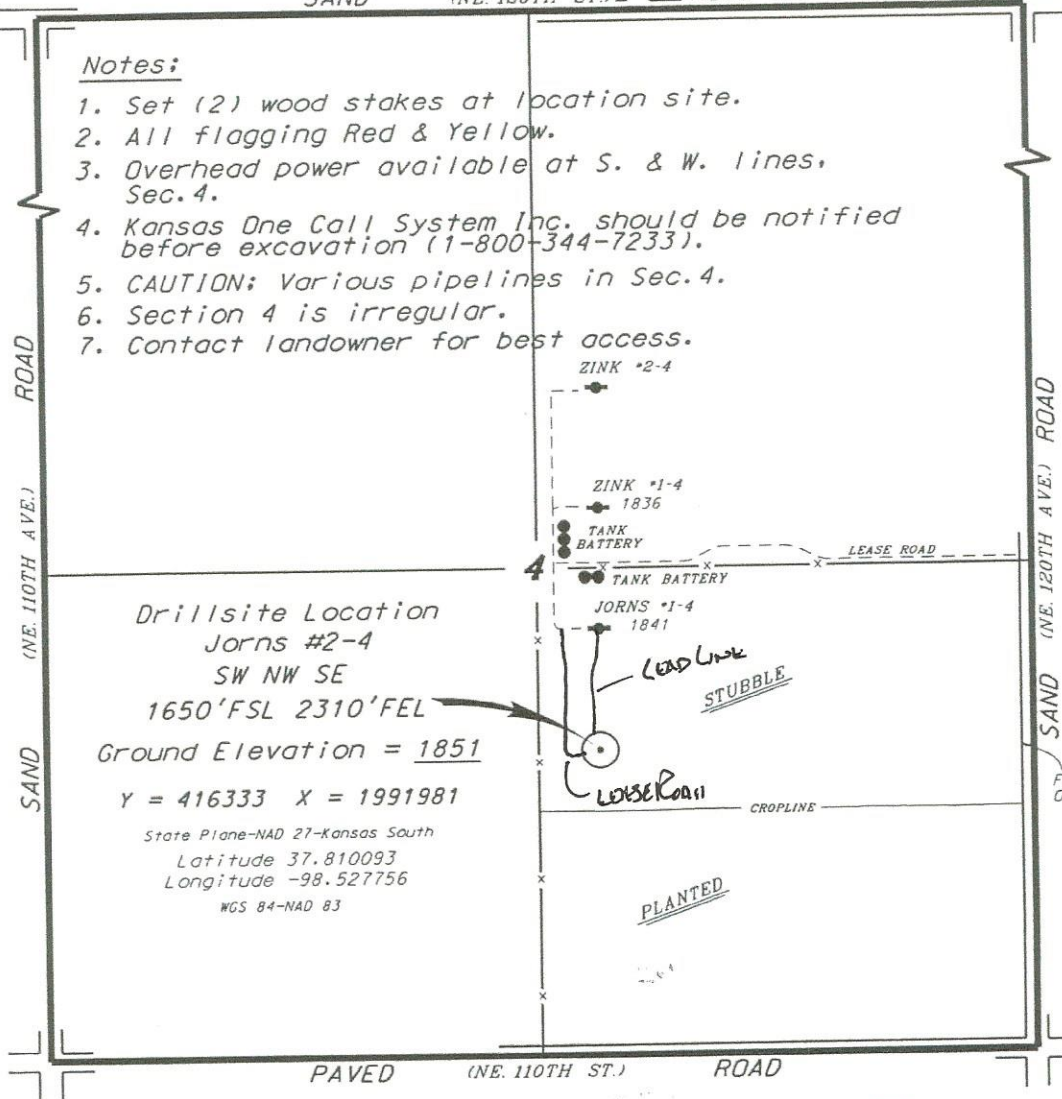 SAND
Notes:
1. Set (2) wood stakes at location site.
2. All flagging Red & Yellow.
3. Overhead power available at S. & W. lines,
Sec. 4.
4. Kansas One Call System Inc. should be notified
before excavation (1-800-344-7233).
5. CAUTION: Various pipelines in Sec. 4.
6. Section 4 is irregular.
7. Contact landowner for best access.
ROAD
(NE. 110TH AVE.)
SAND
ZINK #2-4
ZINK #1-4
1836
TANK
BATTERY
LEASE ROAD
4
TANK BATTERY
JORNS #1-4
1841
LEAD LINE
STUBBLE
LEASE ROAD
CROPLINE
PLANTED
Drillsite Location
Jorns #2-4
SW NW SE
1650'FSL 2310'FEL
Ground Elevation = 1851
Y = 416333 X = 1991981
State Plane-NAD 27-Kansas South
Latitude 37.810093
Longitude -98.527756
WGS 84-NAD 83
ROAD
(NE. 120TH AVE.)
SAND
PAVED (NE. 110TH ST.) ROAD